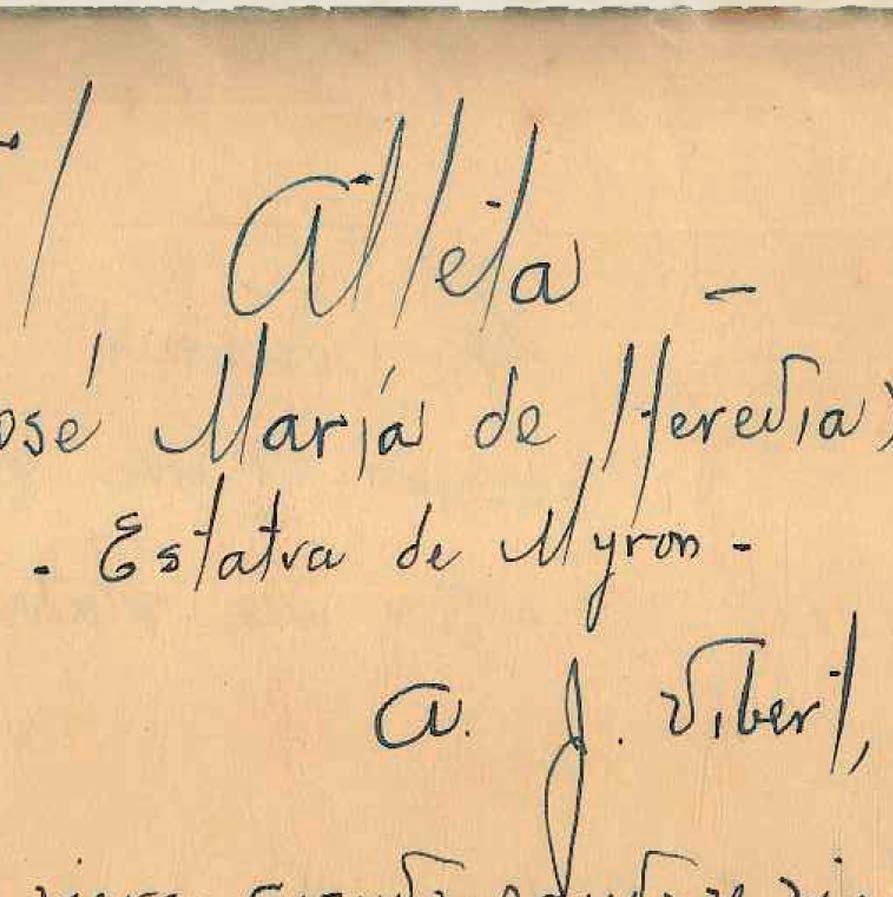 l Atleta -
osé María de Heredia)
- Estatua de Myron -
A. J. Vibert,